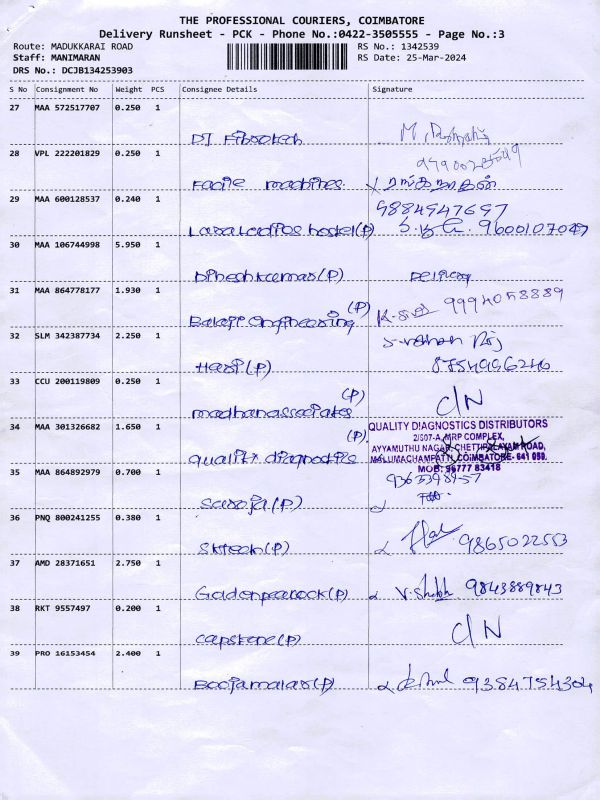 THE PROFESSIONAL COURIERS, COIMBATORE
Delivery Runsheet - PCK - Phone No.:0422-3505555 - Page No.:3
Route: MADUKKARAI ROAD
RS No.: 1342539
Staff: MANIMARAN
RS Date: 25-Mar-2024
DRS No.: DCJB134253903
S No Consignment No Weight PCS Consignee Details Signature
27 MAA 572517707 0.250 1
DJ Fibrotech
28 VPL 222201829 0.250 1
Facile machines.
29 MAA 600128537 0.240 1
9884947697
Lara Ladies hostel(P) 9600107049
30 MAA 106744998 5.950 1
Dineshkumar(P)
31 MAA 864778177 1.930 1
Balaji engineering (P) 9994058889
32 SLM 342387734 2.250 1
Hari(P) 8754956246
33 CCU 200119809 0.250 1
madhanassociates (P) C/N
34 MAA 301326682 1.650 1
QUALITY DIAGNOSTICS DISTRIBUTORS
2/507-A, MRP COMPLEX,
AYYAMUTHU NAGAR, CHETTIPALAYAM ROAD,
MALUMACHAMPATTI, COIMBATORE- 641 050.
MOB: 96777 83418
quality diagnostics (P).
35 MAA 864892979 0.700 1
9363398957
Saroja(P)
36 PNQ 800241255 0.380 1
SKtech(P) 9865022553
37 AMD 28371651 2.750 1
Goldenpeacock(P) 9843889843
38 RKT 9557497 0.200 1
capstone(P) C/N
39 PRO 16153454 2.400 1
Boojamalar(P) 9384754304